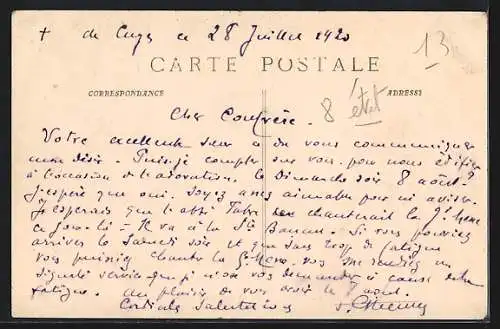 + de Cuges ce 28 Juillet 1920
13
CARTE POSTALE
CORRESPONDANCE
ADRESSE
Cher Confrère.
8
Votre excellente a dû vous communiquer
mon désir. Puis-je compter sur vous pour nous édifier
à l'occasion de l'adoration, le Dimanche soir 8 août?
J'espère que oui. Soyez assez aimable pour m'aviser.
J'espérais que l'abbé Fabre chanterait la Gd Messe
ce jour-là – Il va à la Ste Baume. Si vous pouviez
arriver le Samedi soir et que sans trop de fatigue
vous puissiez chanter la G. Messe, vous me rendriez un
service que je n'ose vous demander à cause de la
fatigue. Au plaisir de vous voir le 7 août.
Cordiales Salutations